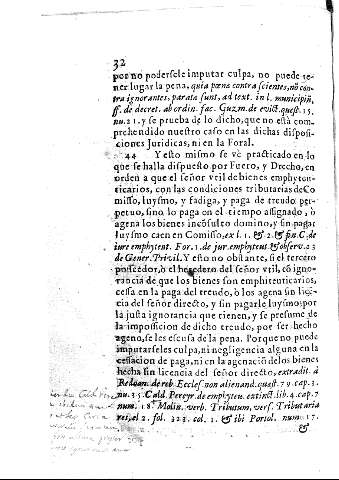 32
por no poderfele imputar culpa, no puede te-
ner lugar la pena, quia pœna contra fcientes, nõ con-
tra ignorantes, parata funt, ad text. in l. municipiũ,
ff. de decret. ab ordin. fac. Guzm. de evict. quæft. 15.
nu. 21. y fe prueba de lo dicho, que no eftà com-
prehendido nueftro cafo en las dichas difpofi-
ciones Juridicas, ni en la Foral.
44 Y efto mifmo fe vè practicado en lo
que fe halla difpuefto por Fuero, y Drecho, en
orden a que el feñor vtil de bienes emphyteu-
ticarios, con las condiciones tributarias de Co
miffo, luyfmo, y fadiga, y paga de treudo per-
petuo, fino lo paga en el tiempo affignado, ò
agena los bienes inconfulto domino, y fin pagar
luyfmo caen en Comiffo, ex l. 1. & 2. & fin. C. de
iure emphyteut. For. 1. de jur. emphyteut. & obferv. 23
de Gener. Privil. Y efto no obftante, fi el tercero
poffeedor, ò el heredero del feñor vtil, cõ igno-
rancia de que los bienes fon emphiteuticarios,
ceffa en la paga del treudo, ò los agena fin licē-
cia del feñor directo, y fin pagarle luyfmo, por
la jufta ignorancia que tienen, y fe prefume de
la impoficion de dicho treudo, por fer hecho
ageno, fe les efcufa de la pena. Porque no puede
imputarfeles culpa, ni negligencia alguna en la
ceffacion de paga, ni en la agenaciõ de los bienes
hecha fin licencia del feñor directo, ex tradit. à
Redoan. de reb. Ecclef. non alienand. quæft. 79. cap. 3.
nu. 35. Cald. Pereyr. de emphyteu. extinct. lib. 4. cap. 7
num. 18. Molin. verb. Tributum, verf. Tributaria
res, el 2. fol. 323. col. 1. & ibi Portol. num. 17.